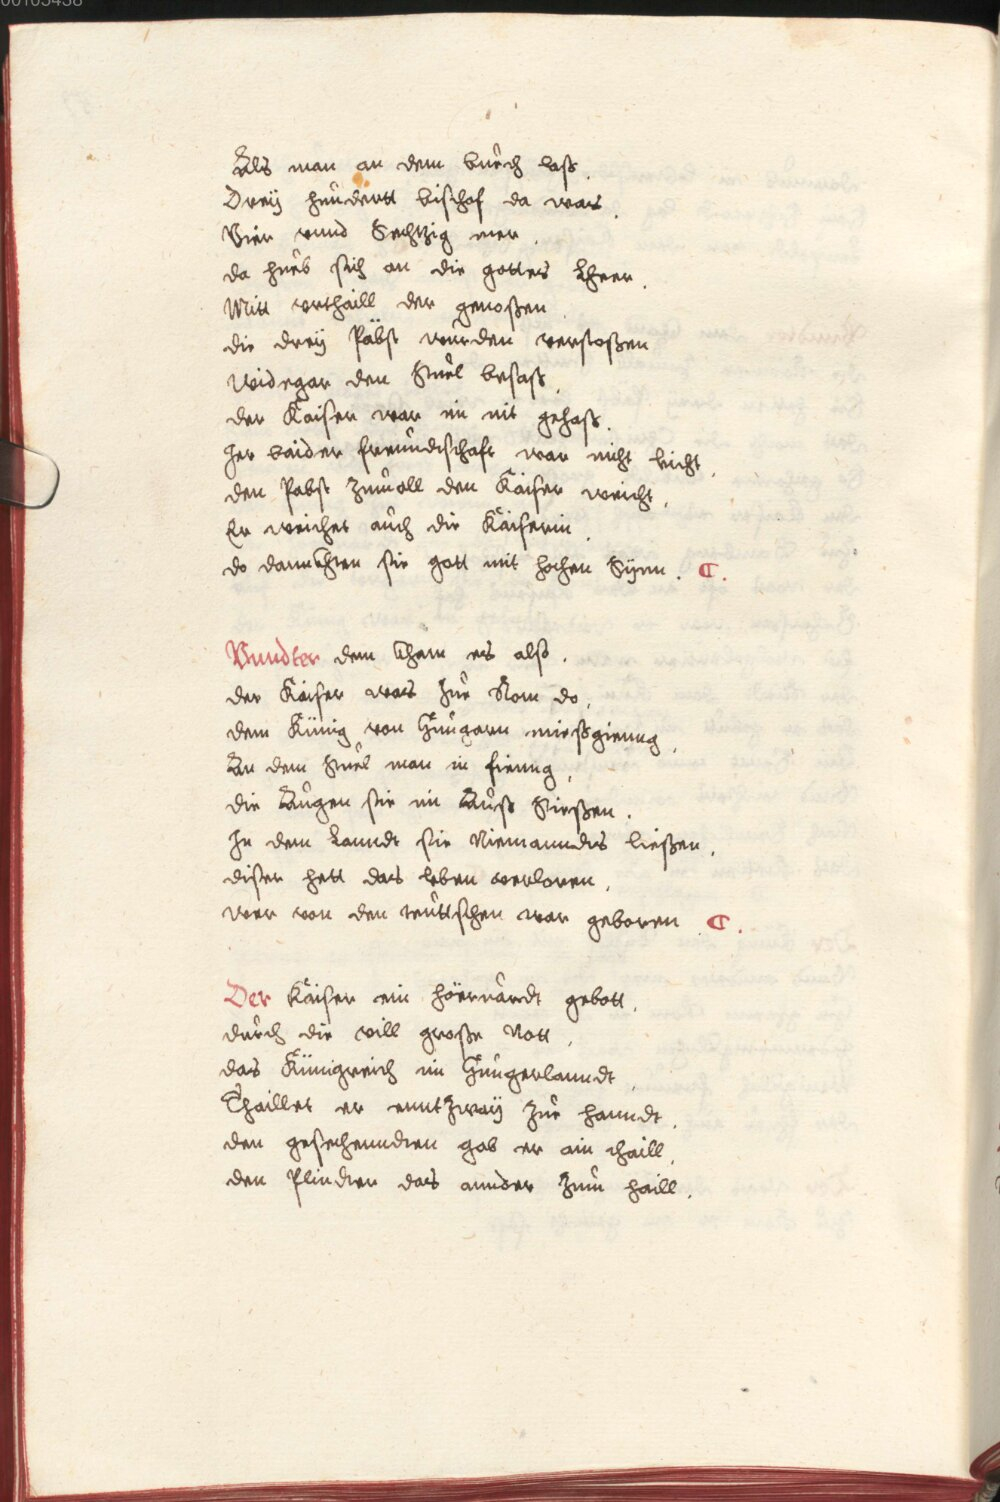 00105458
Als man an dem bůech laß.
Drey hůndertt bischof da was.
Vier vnnd Sechtzig mer.
da hueb sich an die gottes Eher.
Mitt vrthaill der genoßen.
die drey Päbst wurden verstoßen
Widegar den Stuel besaß.
der Kaiser war im nit gehaß.
Jer baider freundtschaft war nicht leicht.
den Pabst Zumall den Kaiser weicht.
Er weichet aůch die Kaiserin.
do dannckhten sie gott mit hochen Synn. C.
Vnndter dem kham es allß.
der Kaiser was Zue Rom do.
dem Künig von Hungarn mießgienng.
An dem Stuel man in fienng.
die Augen sie im Auß Stießen.
In dem Lanndt sie Niemanndts ließen.
dißer hett das leben verloren.
wer von den teůttschen war geboren C.
Der Kaiser ein höeruardt gebott.
důrch die vill große Nott.
das Künigreich im Hungerlanndt.
Thaillet er enntZway Zue hanndt.
den gesechenndten gab er ain thaill.
den Plindten das annder Zum haill.